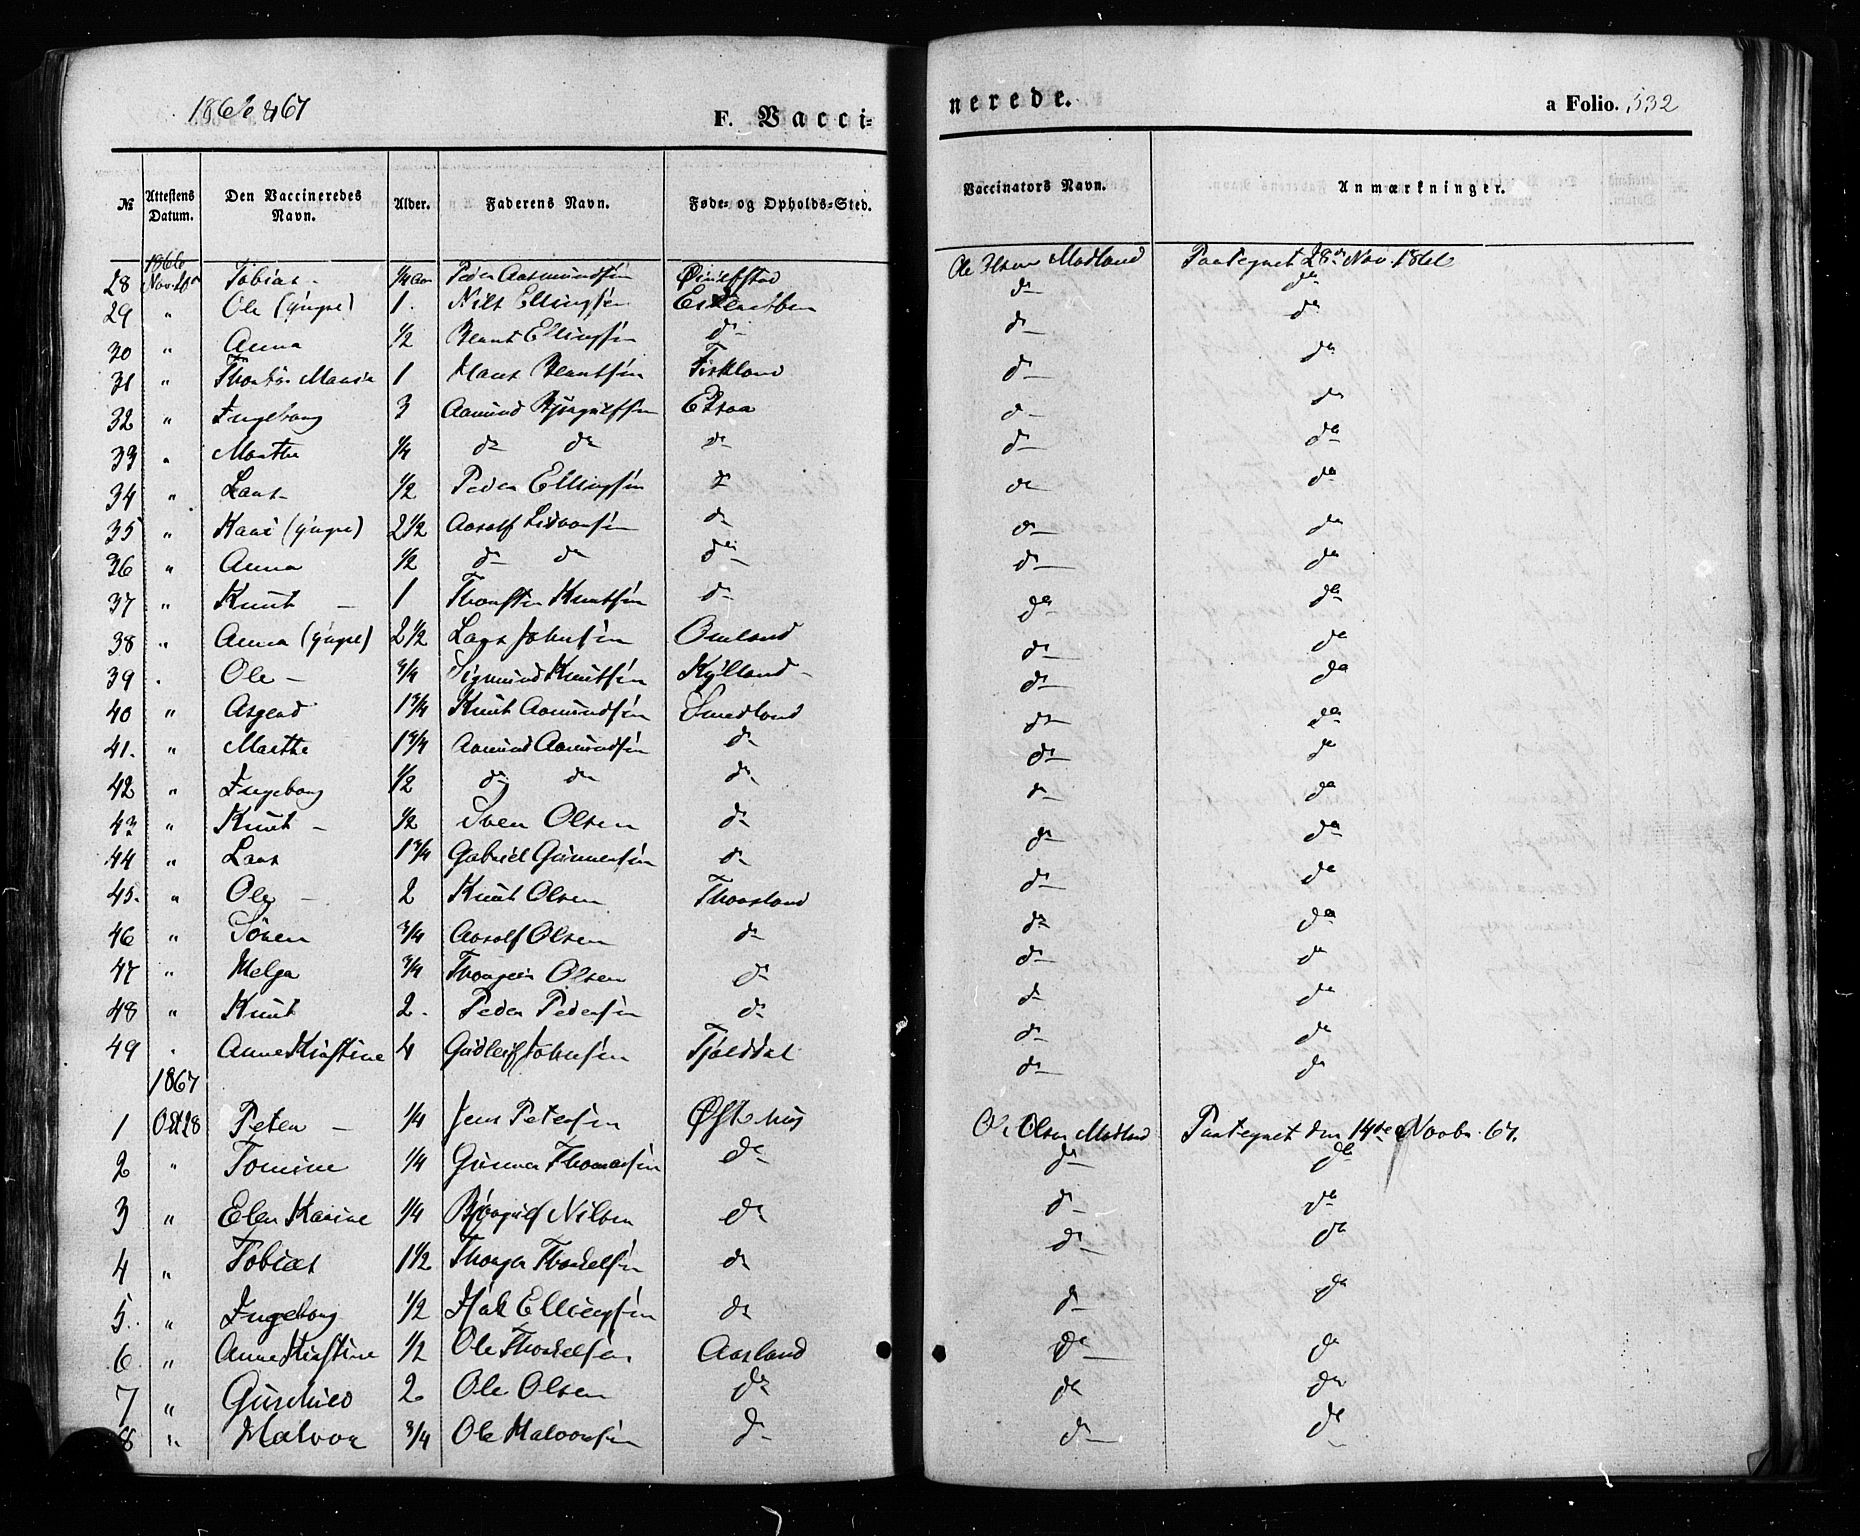 1866 & 67
F. Vacci-
nerede.
a Folio. 532
№ Attestens Datum. Den Vaccineredes Navn. Alder. Faderens Navn. Føde- og Opholds-Sted. Vaccinators Navn. Anmærkninger.
1866
28 Tobias ¼ Aar Peder Aasmundsen Ole Olsen Modland Paategnet 28de Nov. 1866
29 " Ole (yngre) 1. Nils Ellingsen do do
30 " Anna ½ Bernt Ellingsen do do do
31 " Marie 1 Hans Berntsen Fiskland do do
32 " Ingeborg 3 Aamund Bjørgulfsen do do
33 " Marthe ¼ do do do do do
34 " Lars ½ Peder Ellingsen do do do
35 " Kari (yngre) 2½ Aasolf do do do
36 " Anna ½ do do do do do
37 " Knut – 1 Thorsten Knutsen do do do
38 " Anna (yngre) 2½ Lars Johnsen Omland do do
39 " Ole – ¾ Sigmund Knutsen Kylland do do
40 " Asgerd 1¾ Knut Aamundsen Smedland do do
41. " Marthe 1¾ Aamund Aamundsen do do do
42 " Ingeborg ½ do do do do do
43 " Knut – ½ Sven Olsen do do do
44 " Lars 1¾ Gabriel Gunnersen do do do
45. " Ole – 2 Knut Olsen Thorsland do do
46 " Søren ¾ Aasolf Olsen do do do
47 " Helga ¾ Thorgeir Olsen do do do
48 " Knut 2. Peder Pedersen do do do
49 " Anne Kirstine 4 Gudleif Johnsen Tjølddal do do
1867
1 Oct 28 Peter – ¼ Jens Petersen Øftehus Ole Olsen Modland Paategnet den 14de Novbr. 67.
2 " Tomine ¼ Gunner Thomassen do do do
3 " Elen Karine ¼ Bjørgulf Nilsen do do do
4 " Tobias 1½ Thorger Thorkelsen do do do
5. " Ingeborg ½ Ellingsen do do do
6 " Anne Kirstine ½ Ole Thorkelsen Aasland do do
7 " 2 Ole Olsen do do do
8 " Halvor ¾ Ole Halvorsen do do do